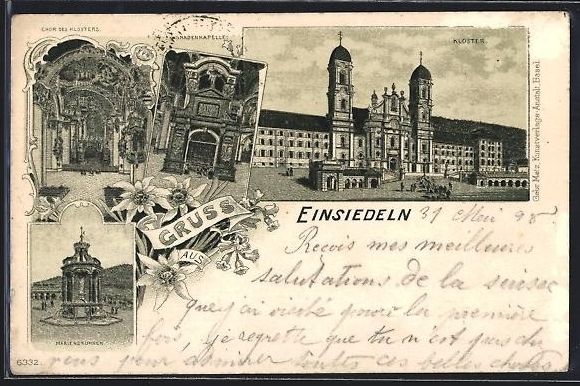 CHOR DES KLOSTERS.
GNADENKAPELLE.
KLOSTER.
Gebr. Metz, Kunstverlags-Anstalt, Basel.
GRUSS
AUS
EINSIEDELN
MARIENBRUNNEN
6332.
31 Mai 98
Reçois mes meilleures
salutations de la suisse
que j'ai visité pour la première
fois, je regrette que tu n'est pas du
pour admirer toutes ces belles choses